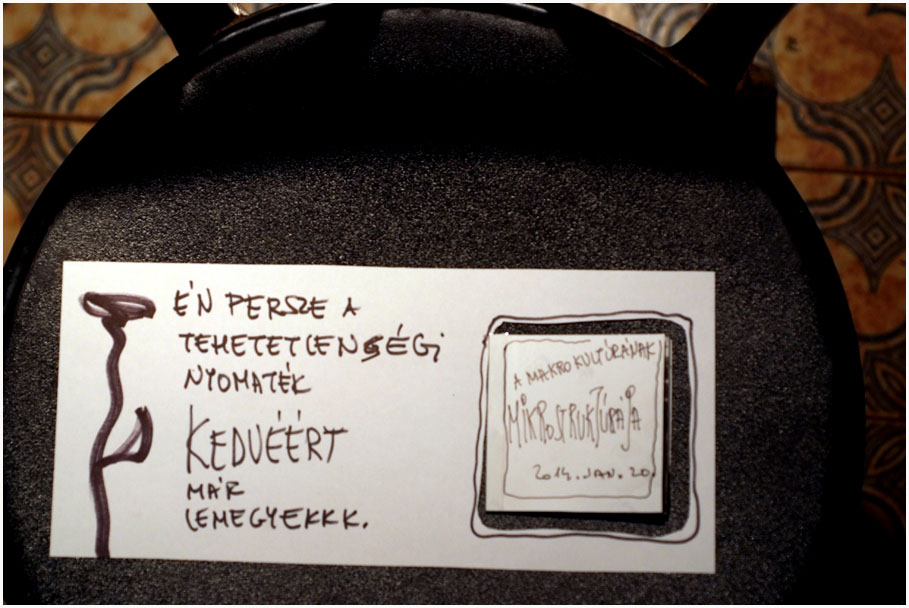 ÉN PERSZE A
TEHETETLENSÉGI
NYOMATÉK
KEDVÉÉRT
MÁR
LEMEGYEKKK.
A MAKROKULTÚRÁNAK
MIKROSTRUKTÚRÁJA
2014. JAN. 20.